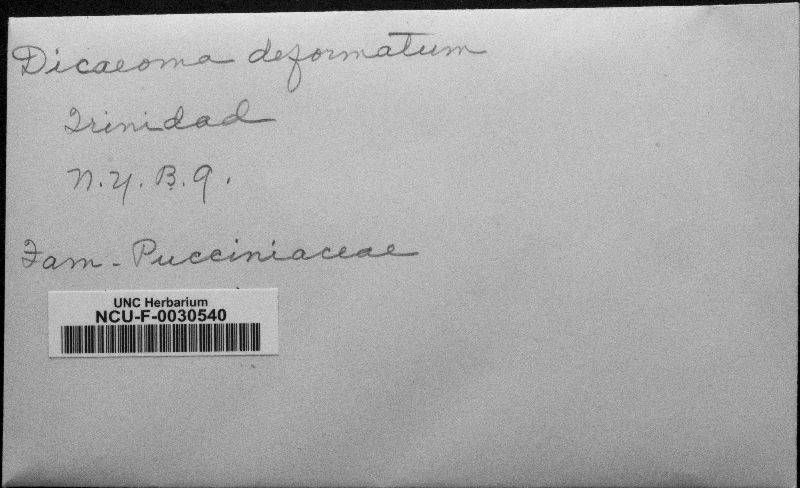 Dicaeoma deformatum
Trinidad
N.Y.B.G.
Fam - Pucciniaceae
UNC Herbarium
NCU-F-0030540